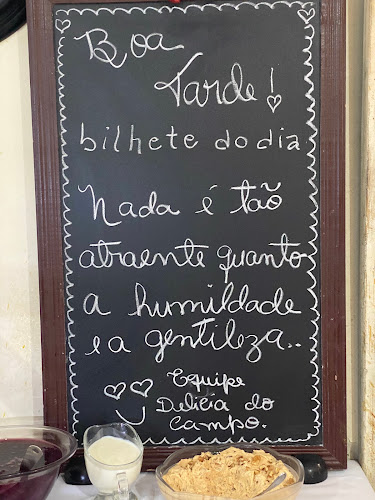 Boa
Tarde!
bilhete do dia
Nada é tão
atraente quanto
a humildade
e a gentileza..
Equipe
Delícia do
Campo.